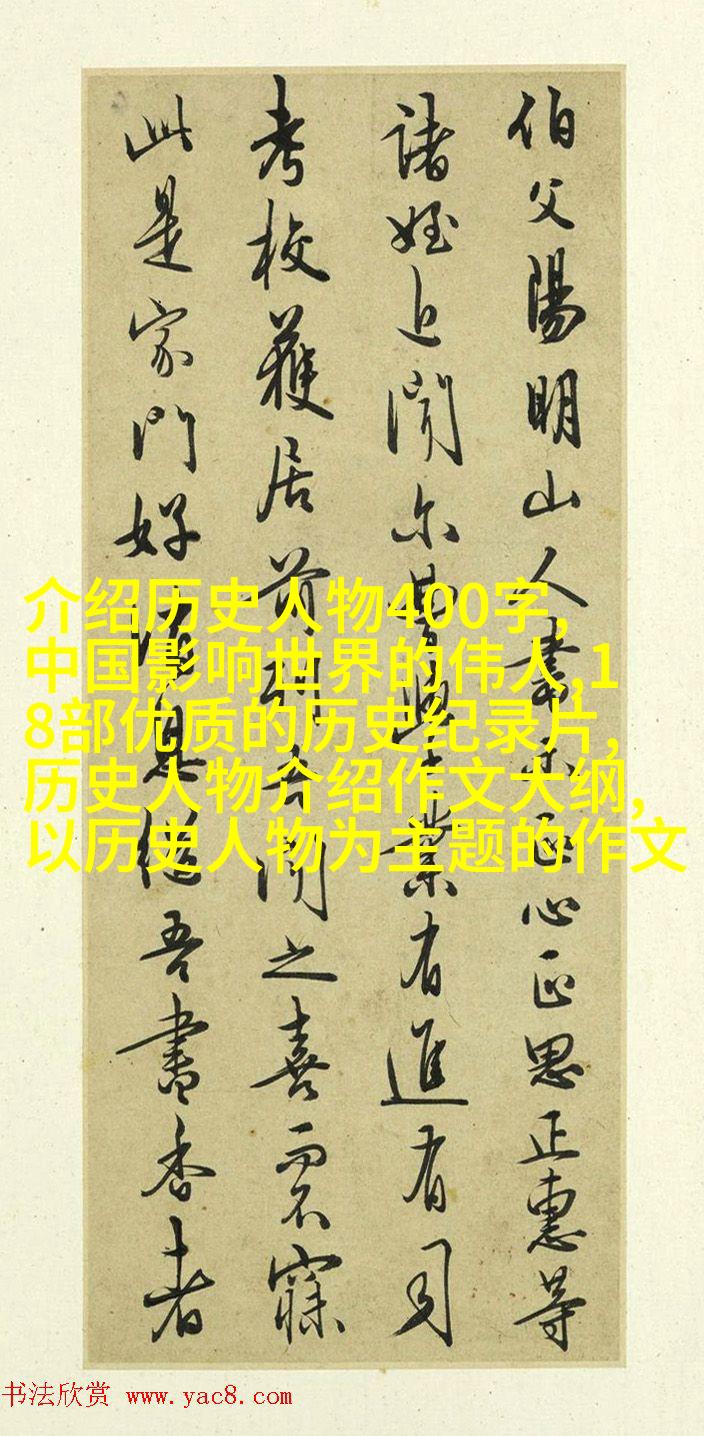 伯父陽明山人書示正心正思正惠等
諸姪近聞尔曹學業有進有司
考校獲居前列吾聞之喜而不寐
此是家門好消息繼吾書香者
介绍历史人物400字,
中国影响世界的伟人,1
8部优质的历史纪录片,
历史人物介绍作文大纲,
以历史人物为主题的作文
书法欣赏 www.yac8.com